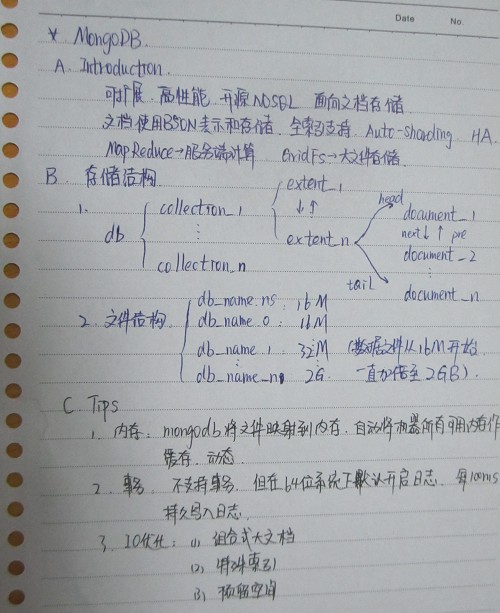 Date No.
* MongoDB.
A. Introduction.
可扩展 高性能 开源NOSQL 面向文档存储
文档使用BSON表示和存储. 全索引支持. Auto-sharding. HA.
MapReduce→服务端计算 GridFs→大文件存储.
B. 存储结构
1. db { collection_1 ⋮ collection_n { extent_1 ↓↑ extent_n head document_1 next↓ ↑pre document_2 ⋮ tail document_n
2. 文件结构 { db_name.ns : 16M
db_name.0 : 16M
db_name.1 : 32M (数据文件从16M开始
db_name.n : 2G. 一直加倍至2GB).
C. Tips
1. 内存: mongodb将文件映射到内存. 自动将机器所有可用内存作
缓存. 动态.
2. 事务. 不支持事务. 但在64位系统下默认开启日志. 每100ms
持久写入日志.
3. IO优化: (1) 组合式大文档
(2) 特殊索引
(3) 预留空间